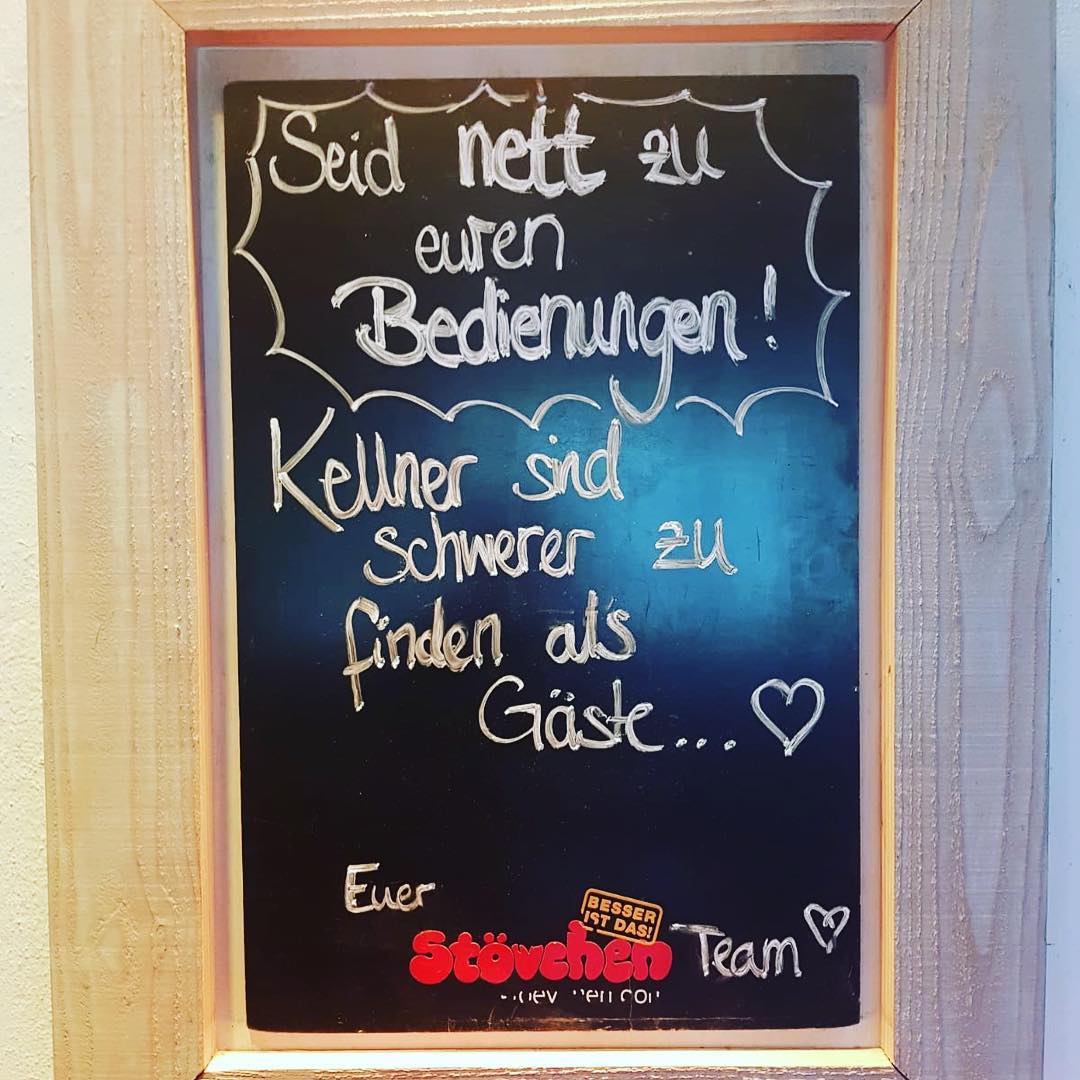 Seid nett zu
euren
Bedienungen!
Kellner sind
schwerer zu
finden als
Gäste...
Euer
BESSER
IST DAS!
Stövchen Team